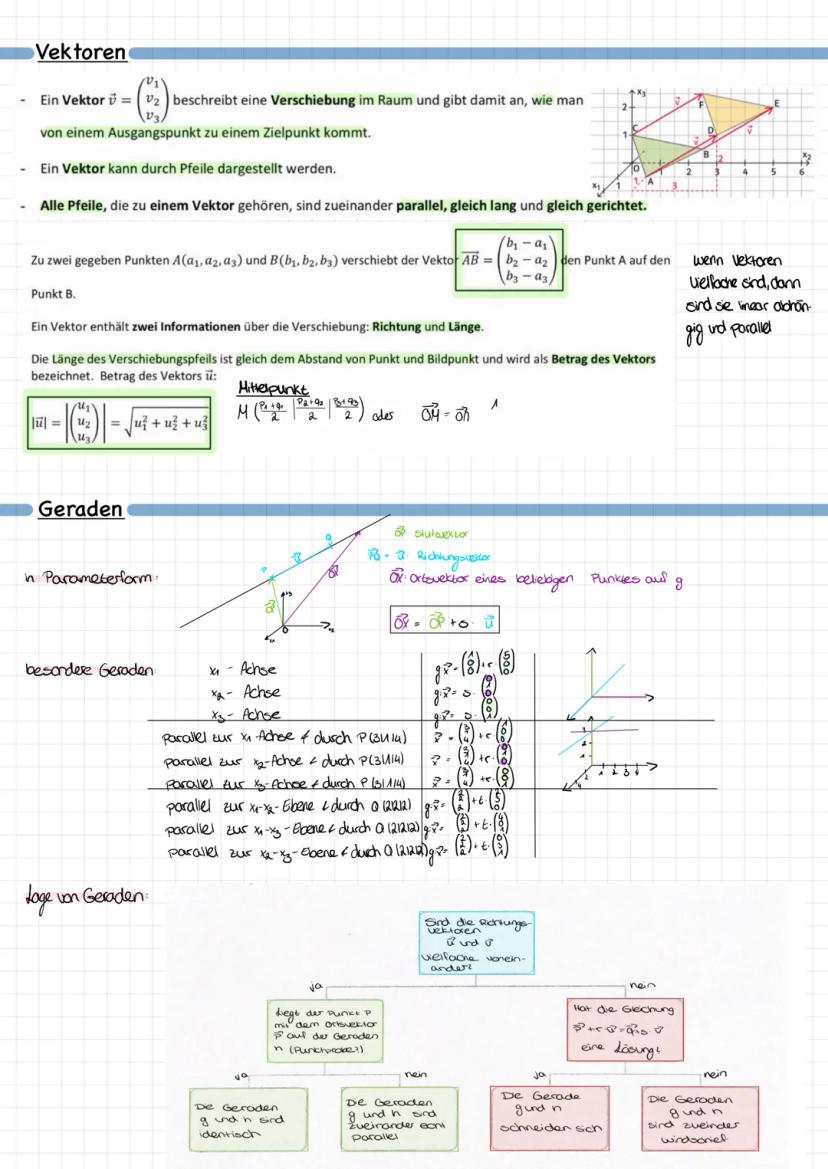 Vektoren
- Ein Vektor v⃗ = (v₁ v₂ v₃) beschreibt eine Verschiebung im Raum und gibt damit an, wie man
von einem Ausgangspunkt zu einem Zielpunkt kommt.
- Ein Vektor kann durch Pfeile dargestellt werden.
- Alle Pfeile, die zu einem Vektor gehören, sind zueinander parallel, gleich lang und gleich gerichtet.
Zu zwei gegeben Punkten A(a₁, a₂, a₃) und B(b₁, b₂, b₃) verschiebt der Vektor AB⃗ = (b₁ − a₁ b₂ − a₂ b₃ − a₃) den Punkt A auf den
Punkt B.
wenn Vektoren
Vielfache sind, dann
sind sie linear abhän-
gig und parallel
Ein Vektor enthält zwei Informationen über die Verschiebung: Richtung und Länge.
Die Länge des Verschiebungspfeils ist gleich dem Abstand von Punkt und Bildpunkt und wird als Betrag des Vektors
bezeichnet. Betrag des Vektors u⃗:
|u⃗| = |(u₁ u₂ u₃)| = √(u₁² + u₂² + u₃²)
Mittelpunkt
M (p₁+q₁/2 | p₂+q₂/2 | p₃+q₃/2) oder OM⃗ =
Geraden
OP⃗ Stützvektor
PQ⃗ = u⃗: Richtungsvektor
in Parameterform:
OX⃗: Ortsvektor eines beliebigen Punktes auf g
OX⃗ = OP⃗ + s · u⃗
besondere Geraden:
x₁ - Achse
x₂ - Achse g: x⃗ = s ·
x₃ - Achse g: x⃗ = s ·
parallel zur x₁-Achse & durch P(3|1|4) x⃗ = (3 1 4) + r · (1 0 0)
parallel zur x₂-Achse & durch P(3|1|4) x⃗ = (3 1 4) + r · (0 1 0)
parallel zur x₃-Achse & durch P(3|1|4) x⃗ = (3 1 4) + r · (0 0 1)
parallel zur x₁-x₂-Ebene & durch Q(2|2|2) g: x⃗ = (2 2 2) + t ·
parallel zur x₁-x₃-Ebene & durch Q(2|2|2) g: x⃗ = (2 2 2) + t ·
parallel zur x₂-x₃-Ebene & durch Q(2|2|2) g: x⃗ = (2 2 2) + t ·
Lage von Geraden:
Sind die Richtungs-
vektoren
u⃗ und v⃗
vielfache vonein-
ander?
ja
nein
Liegt der Punkt P
mit dem Ortsvektor
p⃗ auf der Geraden
h (Punktprobe?)
Hat die Gleichung
p⃗ + r · u⃗ = q⃗ + s · v⃗
eine Lösung?
ja
nein
ja
nein
Die Geraden
g und h sind
identisch
Die Geraden
g und h sind
zueinander echt
parallel
Die Gerade
g und h
schneiden sich
Die Geraden
g und h
sind zueinder
windschief